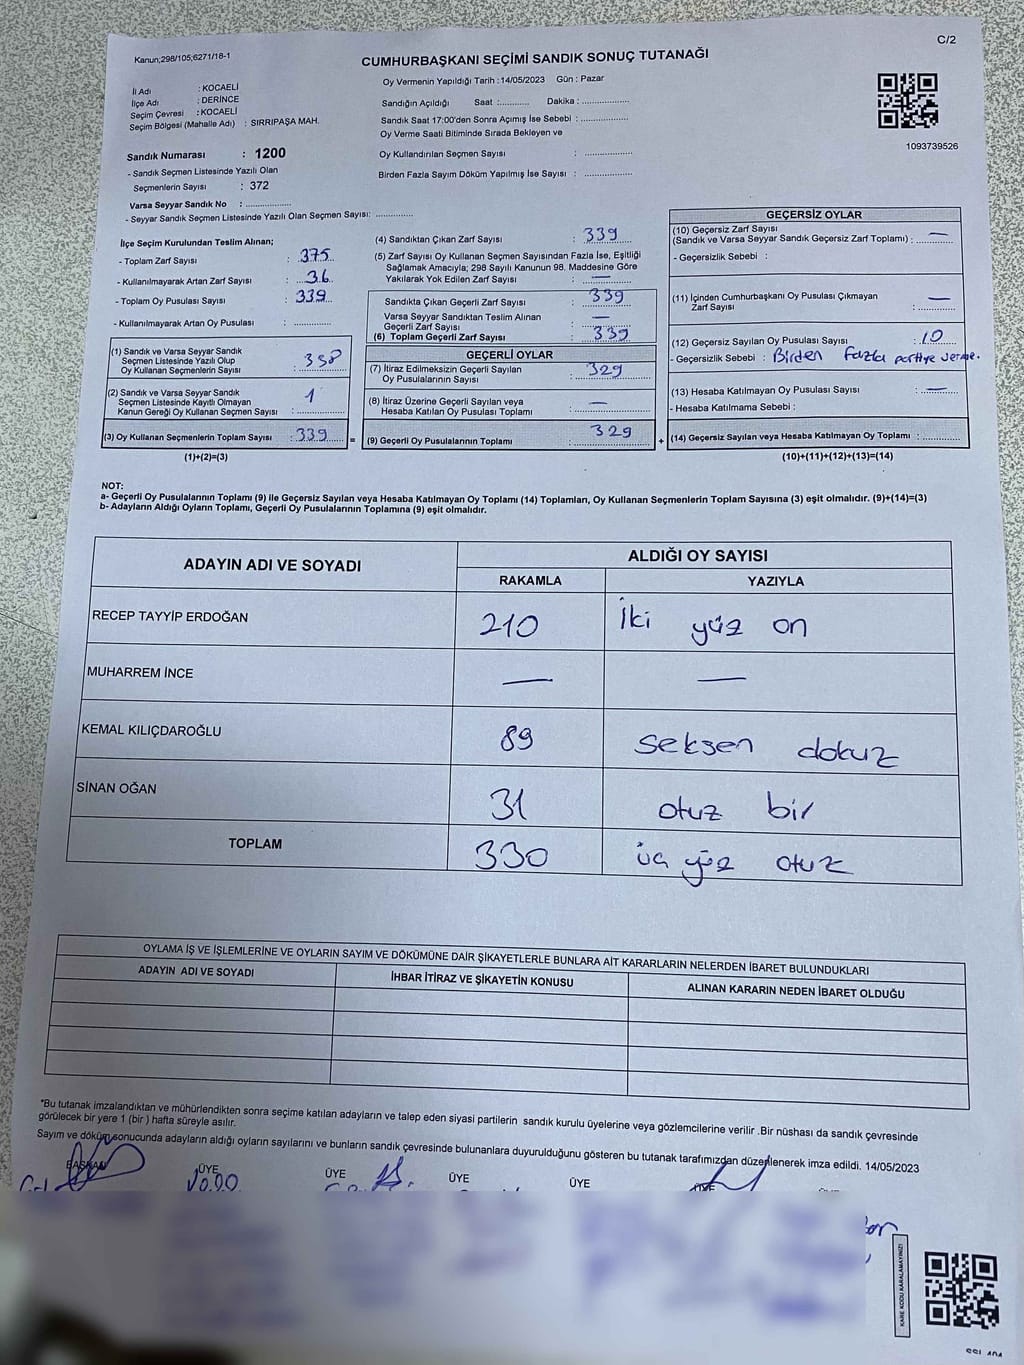 Kanun;298/105;6271/18-1
C/2
CUMHURBAŞKANI SEÇİMİ SANDIK SONUÇ TUTANAĞI
İl Adı : KOCAELİ
İlçe Adı : DERİNCE
Seçim Çevresi : KOCAELİ
Seçim Bölgesi (Mahalle Adı) : SIRRIPAŞA MAH.
Sandık Numarası : 1200
- Sandık Seçmen Listesinde Yazılı Olan
Seçmenlerin Sayısı : 372
Varsa Seyyar Sandık No : ..............
- Seyyar Sandık Seçmen Listesinde Yazılı Olan Seçmen Sayısı: ............
Oy Vermenin Yapıldığı Tarih : 14/05/2023 Gün : Pazar
Sandığın Açıldığı Saat :.......... Dakika : ................
Sandık Saat 17:00'den Sonra Açımış İse Sebebi : ................
Oy Verme Saati Bitiminde Sırada Bekleyen ve
Oy Kullandırılan Seçmen Sayısı : ................
Birden Fazla Sayım Döküm Yapılmış İse Sayısı : ................
1093739526
İlçe Seçim Kurulundan Teslim Alınan;
- Toplam Zarf Sayısı : 375
- Kullanılmayarak Artan Zarf Sayısı : 36
- Toplam Oy Pusulası Sayısı : 339
- Kullanılmayarak Artan Oy Pusulası : ............
(1) Sandık ve Varsa Seyyar Sandık
Seçmen Listesinde Yazılı Olup
Oy Kullanan Seçmenlerin Sayısı : 338
(2) Sandık ve Varsa Seyyar Sandık
Seçmen Listesinde Kayıtlı Olmayan
Kanun Gereği Oy Kullanan Seçmen Sayısı : 1
(3) Oy Kullanan Seçmenlerin Toplam Sayısı : 339 =
(1)+(2)=(3)
(4) Sandıktan Çıkan Zarf Sayısı : 339
(5) Zarf Sayısı Oy Kullanan Seçmen Sayısından Fazla İse, Eşitliği
Sağlamak Amacıyla; 298 Sayılı Kanunun 98. Maddesine Göre
Yakılarak Yok Edilen Zarf Sayısı : —
Sandıkta Çıkan Geçerli Zarf Sayısı : 339
Varsa Seyyar Sandıktan Teslim Alınan
Geçerli Zarf Sayısı : —
(6) Toplam Geçerli Zarf Sayısı : 339
GEÇERLİ OYLAR
(7) İtiraz Edilmeksizin Geçerli Sayılan
Oy Pusulalarının Sayısı : 329
(8) İtiraz Üzerine Geçerli Sayılan veya
Hesaba Katılan Oy Pusulası Toplamı : —
(9) Geçerli Oy Pusulalarının Toplamı : 329 +
GEÇERSİZ OYLAR
(10) Geçersiz Zarf Sayısı
(Sandık ve Varsa Seyyar Sandık Geçersiz Zarf Toplamı) : —
- Geçersizlik Sebebi :
(11) İçinden Cumhurbaşkanı Oy Pusulası Çıkmayan
Zarf Sayısı : —
(12) Geçersiz Sayılan Oy Pusulası Sayısı : 10
- Geçersizlik Sebebi : Birden fazla partiye verme.
(13) Hesaba Katılmayan Oy Pusulası Sayısı : —
- Hesaba Katılmama Sebebi :
(14) Geçersiz Sayılan veya Hesaba Katılmayan Oy Toplamı : ............
(10)+(11)+(12)+(13)=(14)
NOT:
a- Geçerli Oy Pusulalarının Toplamı (9) ile Geçersiz Sayılan veya Hesaba Katılmayan Oy Toplamı (14) Toplamları, Oy Kullanan Seçmenlerin Toplam Sayısına (3) eşit olmalıdır. (9)+(14)=(3)
b- Adayların Aldığı Oyların Toplamı, Geçerli Oy Pusulalarının Toplamına (9) eşit olmalıdır.
ADAYIN ADI VE SOYADI ALDIĞI OY SAYISI
RAKAMLA YAZIYLA
RECEP TAYYİP ERDOĞAN 210 İki yüz on
MUHARREM İNCE — —
KEMAL KILIÇDAROĞLU 89 seksen dokuz
SİNAN OĞAN 31 otuz bir
TOPLAM 330 üç yüz otuz
OYLAMA İŞ VE İŞLEMLERİNE VE OYLARIN SAYIM VE DÖKÜMÜNE DAİR ŞİKAYETLERLE BUNLARA AİT KARARLARIN NELERDEN İBARET BULUNDUKLARI
ADAYIN ADI VE SOYADI İHBAR İTİRAZ VE ŞİKAYETİN KONUSU ALINAN KARARIN NEDEN İBARET OLDUĞU
*Bu tutanak imzalandıktan ve mühürlendikten sonra seçime katılan adayların ve talep eden siyasi partilerin sandık kurulu üyelerine veya gözlemcilerine verilir .Bir nüshası da sandık çevresinde
görülecek bir yere 1 (bir ) hafta süreyle asılır.
Sayım ve döküm sonucunda adayların aldığı oyların sayılarını ve bunların sandık çevresinde bulunanlara duyurulduğunu gösteren bu tutanak tarafımızdan düzenlenerek imza edildi. 14/05/2023
BAŞKAN ÜYE ÜYE ÜYE ÜYE ÜYE
KARE KODU KARALAMAYINIZ!